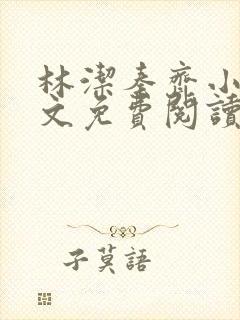 林潔秦齊小
文免費閱讀
子莫語